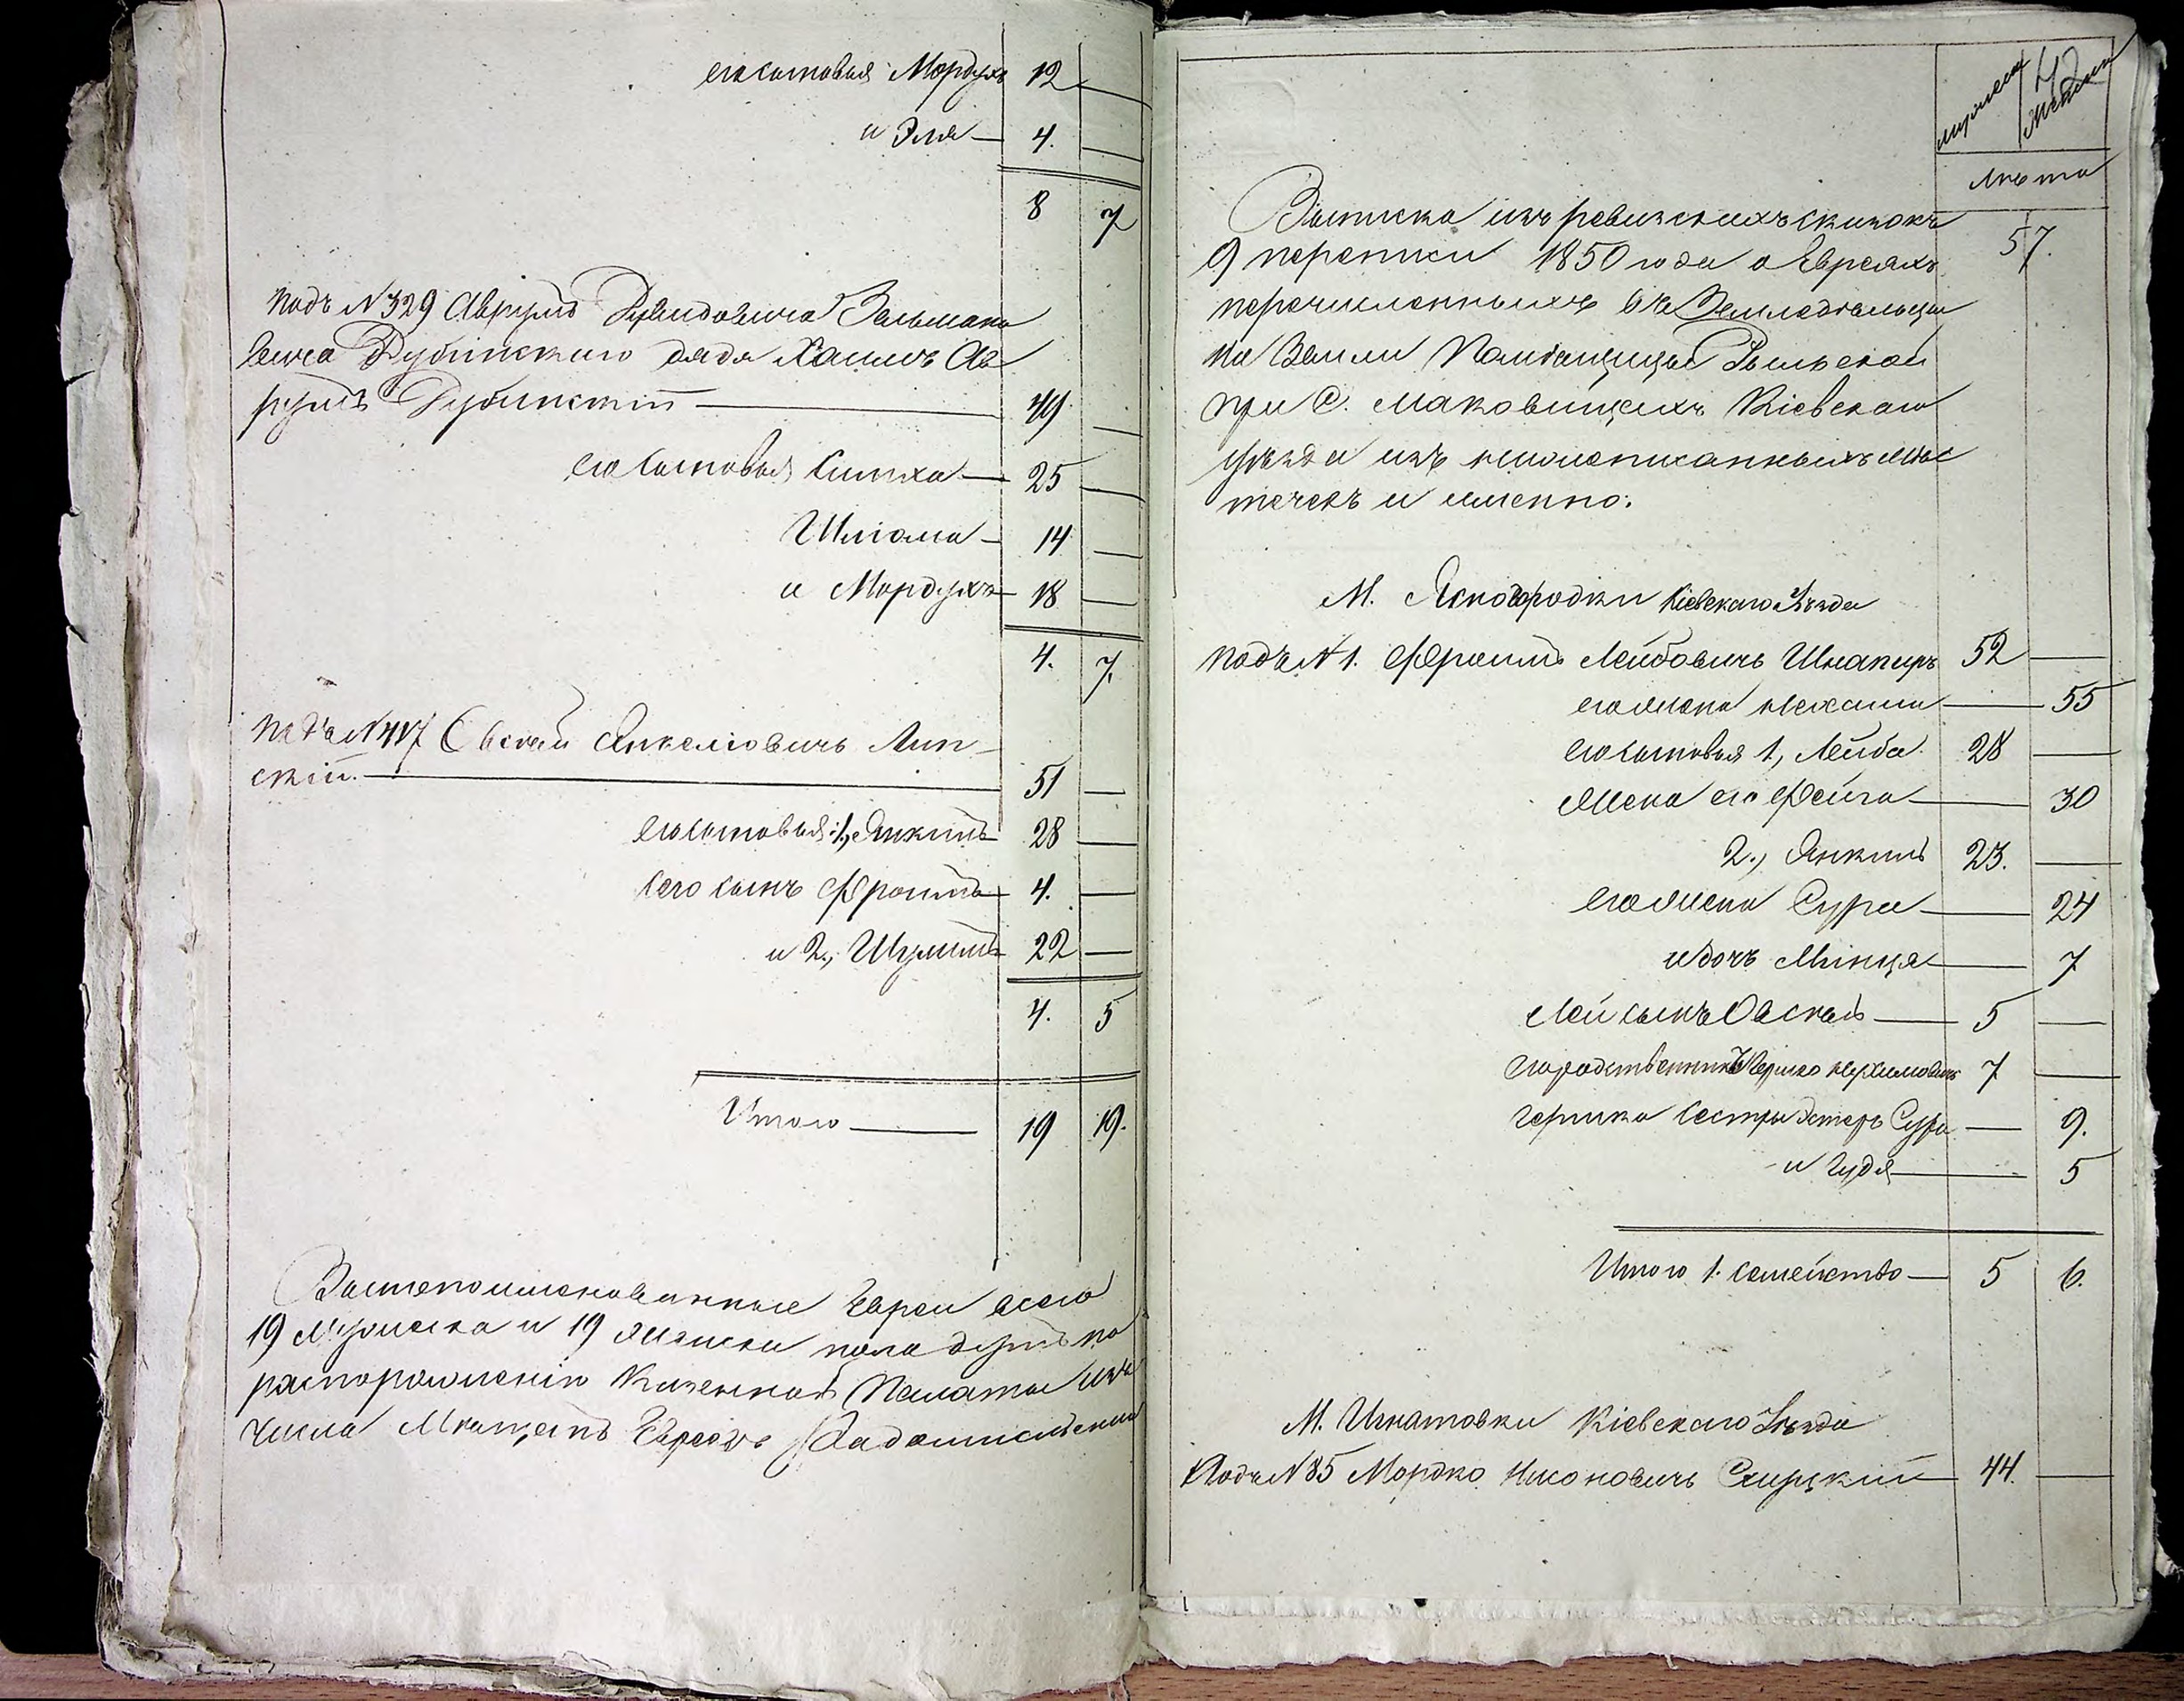 его сыновья Мордухъ 12 —
и Эля — 4. —
8 7
подъ N 329 Аврумъ Дувидовича Зельмано
вича Дубинскаго дядя Хаимъ Ав
румъ Дубинскій — 49 —
его сыновья Симха — 25 —
Шліома — 14 —
и Мордухъ — 18 —
4. 7.
подъ N 417 Овсей Янкеліовичъ Лип-
скій. — 51 —
его сыновья: 1, Янкиль 28 —
сего сынъ Фроимъ 4. —
и 2, Шулимъ 22 —
4. 5
Итого — 19 19.
Вышепоименованные Евреи всего
19 Мужеска и 19 женска пола душъ по
распоряженію Казенной Палаты изъ
числа Мѣщанъ Евреовъ Радомысльских
мужеска женска
лѣта
57.
Выписка изъ ревизскихъ сказокъ
9 переписи 1850 года о Евреяхъ
перечисленныхъ въ Земледѣльцы
на Земли Помѣщицы Рыльской
при С. Маковищахъ Кіевскаго
уѣзда изъ нижеписанныхъ мѣс
течекъ и именно:
М. Ясногородки Кіевскаго Уѣзда
подъ N 1. Фроимъ Лейбовичъ Шнапиръ 52 —
его жена Нехама — 55
его сыновья 1, Лейба. 28 —
жена его Фейга — 30
2., Янкиль 23. —
его жена Сура — 24
и дочь Мінця — 7
Лей сынъ Овсей — 5 —
его родственникъ Гершко Нухимовичъ 7 —
Гершка сестры Эстеръ Сура — 9.
и Гудя — 5
Итого 1. семейство — 5 6.
М. Игнатовки Кіевскаго Уѣзда
Подъ N 85 Мордко Ицковичъ Сквирскій — 44. —